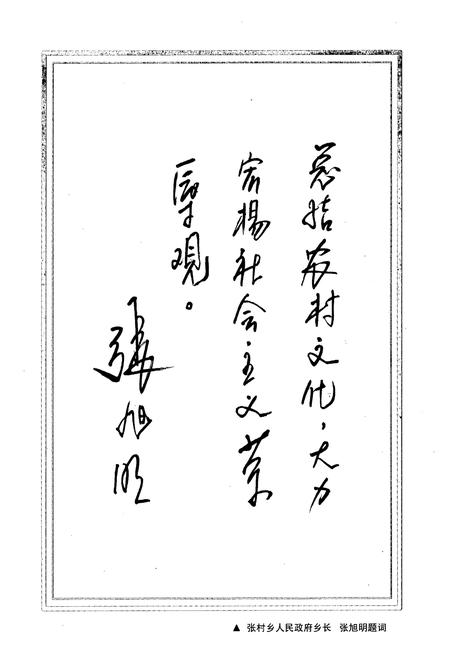 总结农村文化,大力
宏扬社会主义荣
辱观。
张旭明
▲ 张村乡人民政府乡长 张旭明题词